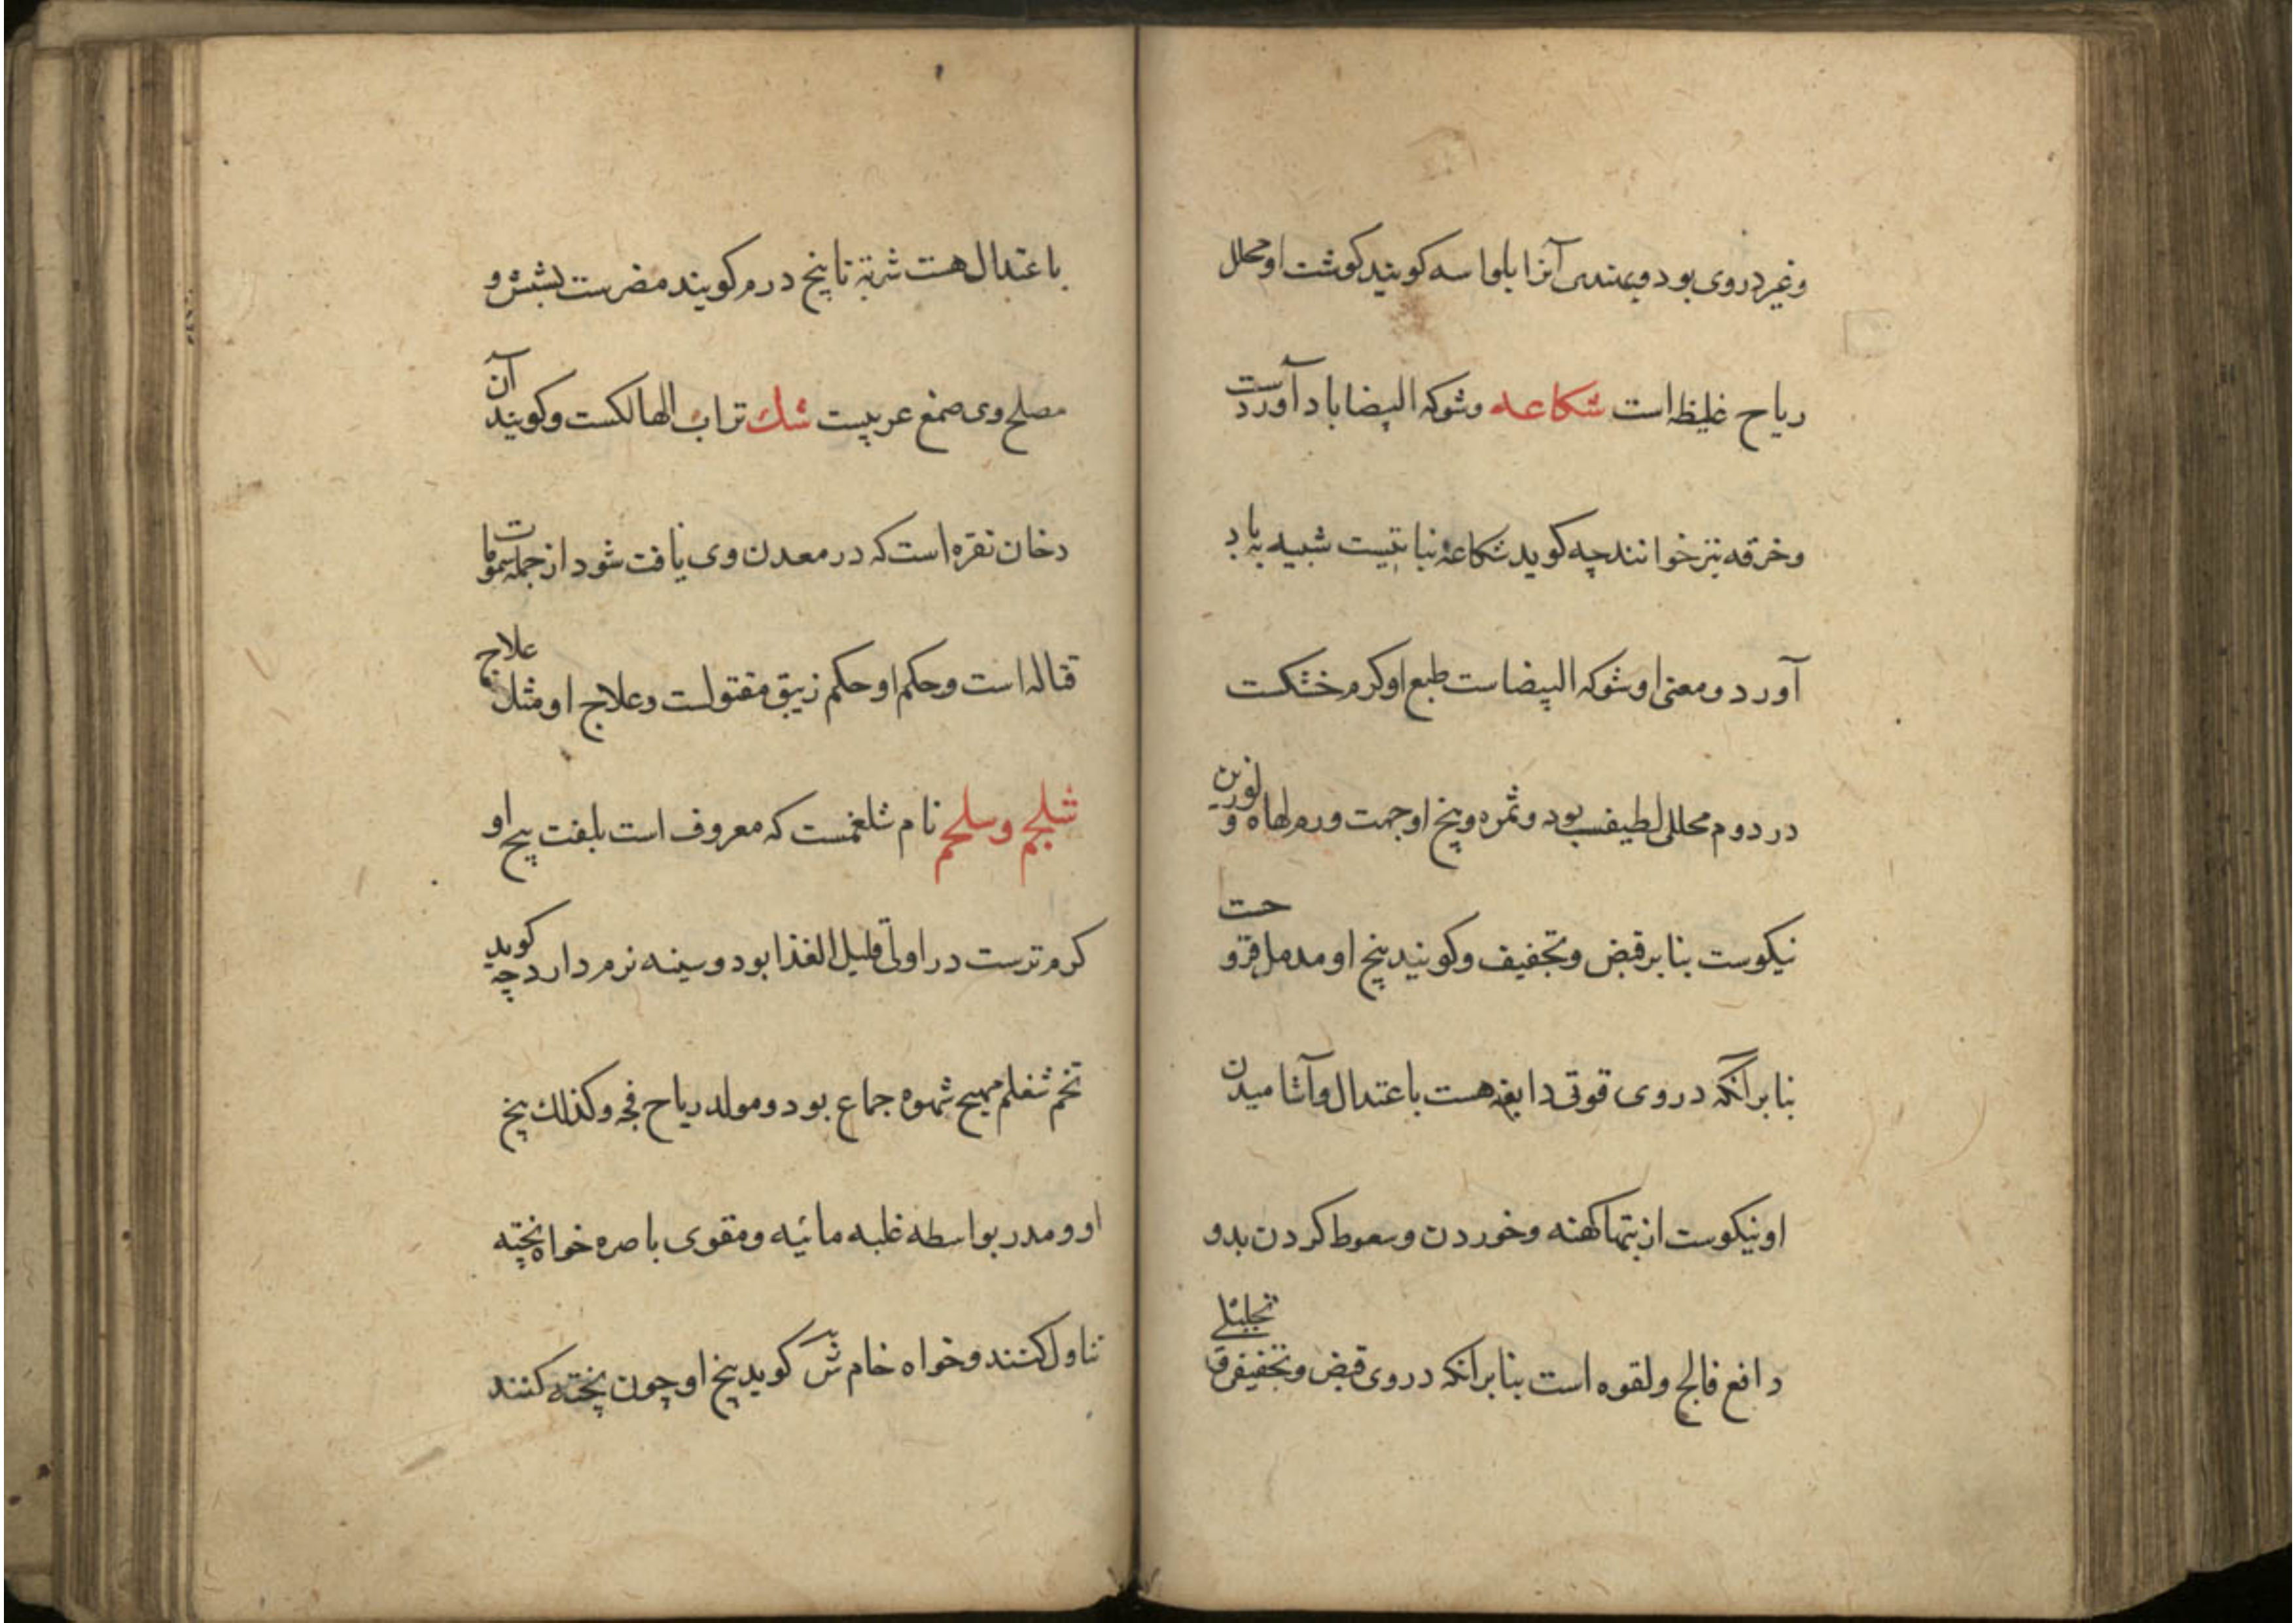 وغیر دروی بود وبهندی آنرا بلواسه کویند کوشت او محلل
ریاح غلیظه است شکاعه وشوکه البیضا باد آوردست
وخرقه نیز خوانند چه کوید شکاعه نباتیست شبیه به باد
آورد ومعنی او شوکه البیضاست طبع او کرم خشکست
در دوم محللی لطیفست بود وثمره وبیخ او جهت ورم لهاه و لوزین
نیکوست بنابر قبض وتجفیف وکویند بیخ او مدمل قروحست
بنابر آنکه دروی قوتی دابغه هست باعتدال وآشامیدن
او نیکوست از تبهاکهنه وخوردن وسعوط کردن بدو
دافع فالج ولقوه است بنابر آنکه دروی قبض وتجفیف وتحلیلی
باعتدال هست شربة تا پنج درم کویند مضرست بشش و
مصلح وی صمغ عربیست شك تراب الهالکست وکویند آن
دخان نقره است که در معدن وی یافت شود از جمله سمومات
قتاله است وحکم او حکم زیبق مقتولست وعلاج او مثل علاج
شلجم وسلجم نام شلغمست که معروف است بلفت بیخ او
کرم ترست در اولی قلیل الغذا بود وسینه نرم دارد چه کوید
تخم شغلم مهیج شهوه جماع بود ومولد ریاح فجه وکذلك بیخ
او ومدر بواسطه غلبه مائیه ومقوی باصره خواه پخته
تناول کنند وخواه خام ش کوید بیخ او چون پخته کنند